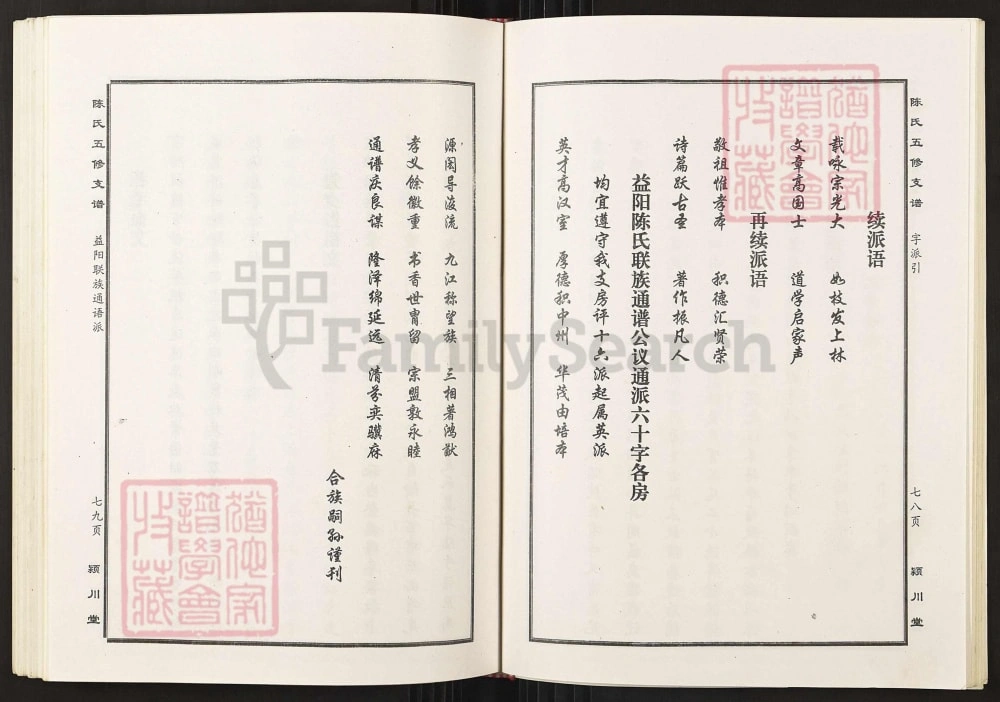 陈氏五修支谱 字派引 七八页 颍川堂
续派语
载咏宗光大 如枝发上林
文章高国士 道学启家声
再续派语
敬祖惟孝本 积德汇贤荣
诗篇跃古圣 著作振凡人
益阳陈氏联族通谱公议通派六十字各房
均宜遵守我支房评十六派起属英派
英才高汉室 厚德积中州 华茂由培本
源图导浚流 九江称望族 三相著鸿猷
孝义馀徽重 书香世胄留 宗盟敦永睦
通谱庆良谋 隆泽绵延远 清芬奕骥麻
合族嗣孙谨刊
陈氏五修支谱 益阳联族通语派 七九页 颍川堂
FamilySearch